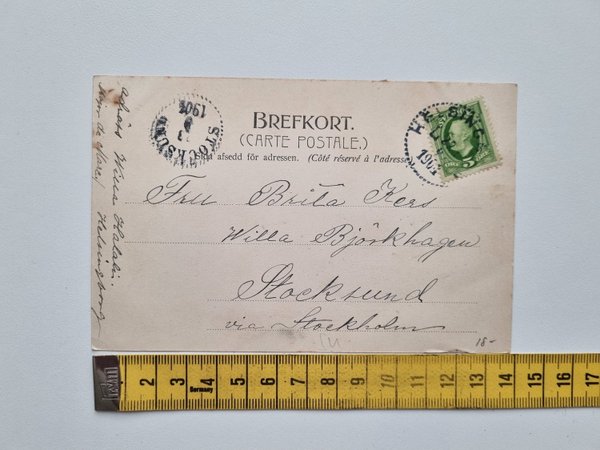 BREFKORT.
(CARTE POSTALE.)
afsedd för adressen. (Côté réservé à l'adresse
Fru Brita Kers
Willa Björkhagen
Stocksund
via Stockholm
18-
STOCKSUND
1901
1901
ÖRE 5
Helsingborg
2 3 4 5 6 7 8 9 10 11 12 13 14 15 16 17
Germany